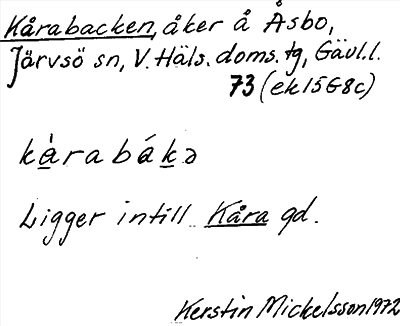 Kårabacken, åker å Åsbo,
Järvsö sn, V. Häls. doms. tg, Gävl.l.
73 (ek 15G8c)
kàrabákə
Ligger intill Kåra gd.
Kerstin Mickelsson 1972